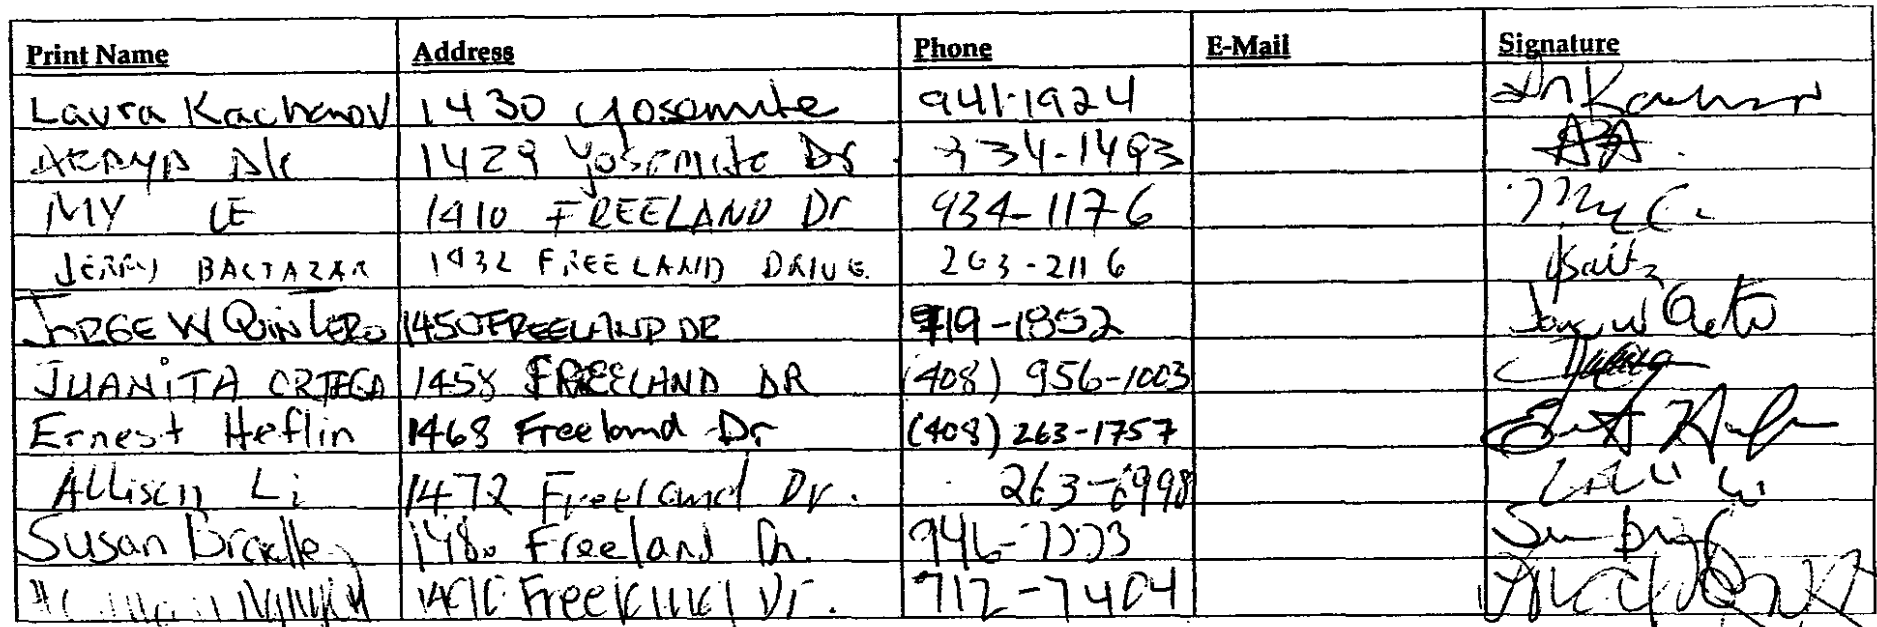 Print Name Address Phone E-Mail Signature
Laura Kachanov 1430 Yosemite 941-1924
1429 Yosemite Dr 934-1493
MY LE 1410 FREELAND Dr 934-1176
JERRY BALTAZAR 1432 FREELAND DRIVE. 263-2116
JORGE W QUINTERO 1450 FREELAND DR 719-1852
JUANITA ORTEGA 1458 FREELAND DR (408) 956-1003
Ernest Heflin 1468 Freeland Dr (408) 263-1757
Allison Li 1472 Freeland Dr. 263-6998
Susan Bradley 1480 Freeland Dr. 946-7773
Freeland Dr. 712-7404